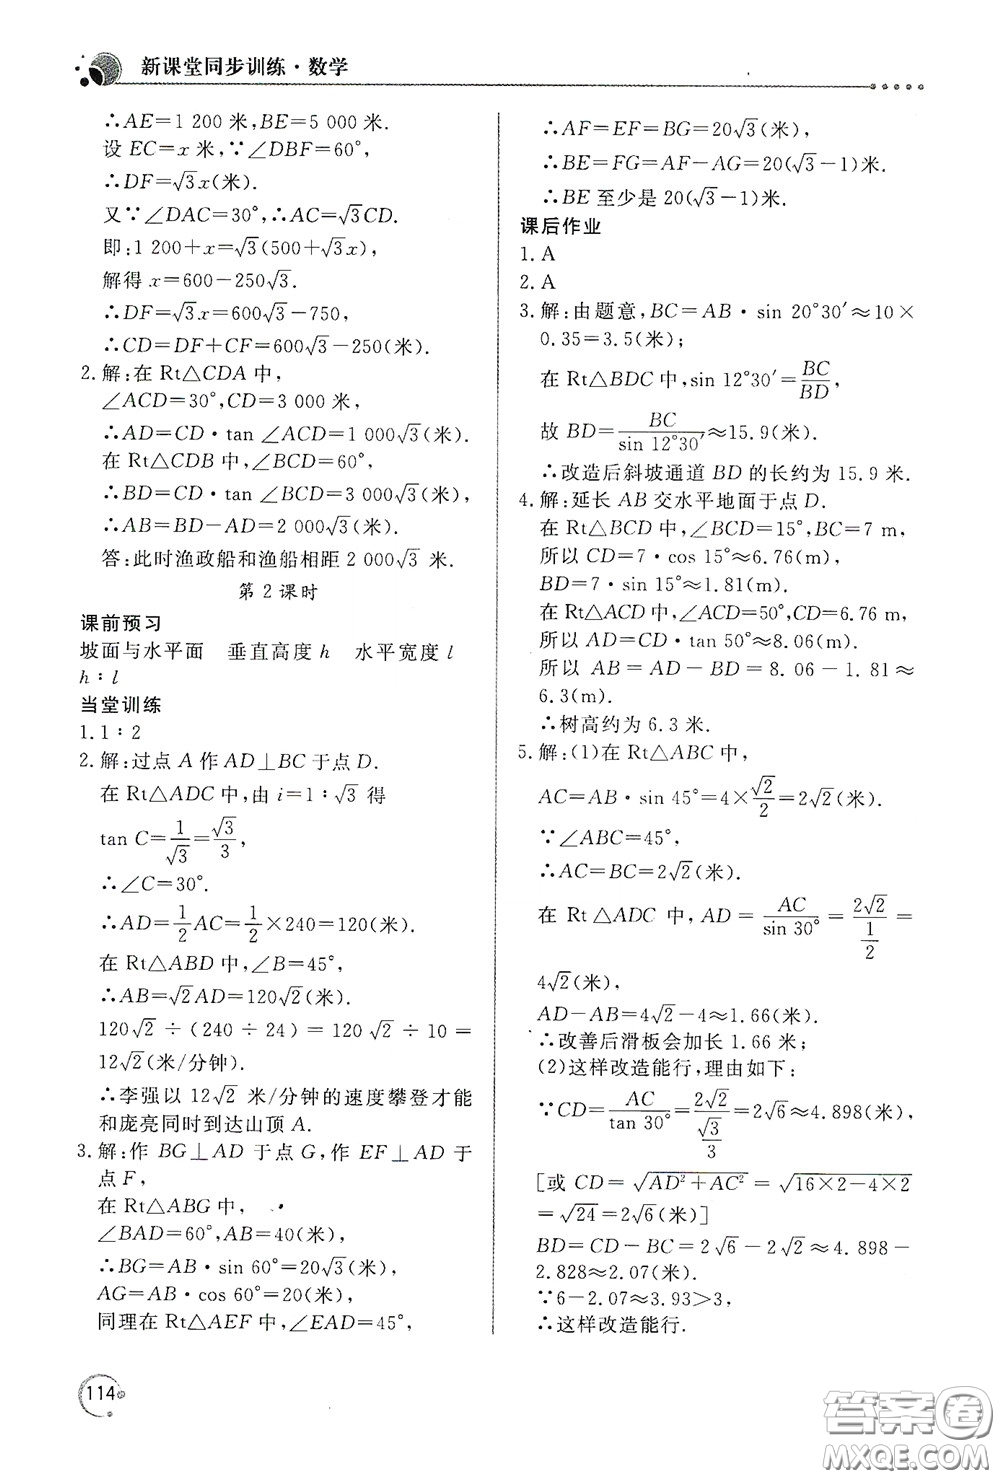 新课堂同步训练·数学
∴AE=1 200 米,BE=5 000 米.
设 EC=x 米,∵∠DBF=60°,
∴DF=√3x(米).
又∵∠DAC=30°,∴AC=√3CD.
即:1 200+x=√3(500+√3x),
解得 x=600-250√3.
∴DF=√3x=600√3-750,
∴CD=DF+CF=600√3-250(米).
2.解:在 Rt△CDA 中,
∠ACD=30°,CD=3 000 米,
∴AD=CD·tan ∠ACD=1 000√3(米).
在 Rt△CDB 中,∠BCD=60°,
∴BD=CD·tan ∠BCD=3 000√3(米),
∴AB=BD-AD=2 000√3(米).
答:此时渔政船和渔船相距 2 000√3 米.
第 2 课时
课前预习
坡面与水平面 垂直高度 h 水平宽度 l
h∶l
当堂训练
1.1∶2
2.解:过点 A 作 AD⊥BC于点 D.
在 Rt△ADC 中,由 i=1∶√3 得
tan C=1/√3=√3/3,
∴∠C=30°.
∴AD=1/2AC=1/2×240=120(米).
在 Rt△ABD 中,∠B=45°,
∴AB=√2AD=120√2(米).
120√2÷(240÷24)=120√2÷10=
12√2(米/分钟).
∴李强以 12√2 米/分钟的速度攀登才能
和庞亮同时到达山顶 A.
3.解:作 BG⊥AD 于点 G,作 EF⊥AD 于
点 F,
在 Rt△ABG 中,
∠BAD=60°,AB=40(米),
∴BG=AB·sin 60°=20√3(米),
AG=AB·cos 60°=20(米),
同理在 Rt△AEF 中,∠EAD=45°,
∴AF=EF=BG=20√3(米),
∴BE=FG=AF-AG=20(√3-1)米.
∴BE 至少是 20(√3-1)米.
课后作业
1.A
2.A
3.解:由题意,BC=AB·sin 20°30′≈10×
0.35=3.5(米);
在 Rt△BDC 中,sin 12°30′=BC/BD,
故 BD=BC/sin 12°30′≈15.9(米).
∴改造后斜坡通道 BD 的长约为 15.9 米.
4.解:延长 AB 交水平地面于点 D.
在 Rt△BCD 中,∠BCD=15°,BC=7 m,
所以 CD=7·cos 15°≈6.76(m).
BD=7·sin 15°≈1.81(m).
在 Rt△ACD 中,∠ACD=50°,CD=6.76 m,
所以 AD=CD·tan 50°≈8.06(m).
所以 AB=AD-BD=8.06-1.81≈
6.3(m).
∴树高约为 6.3 米.
5.解:(1)在 Rt△ABC 中,
AC=AB·sin 45°=4×√2/2=2√2(米).
∵∠ABC=45°,
∴AC=BC=2√2(米).
在 Rt△ADC 中,AD=AC/sin 30°=2√2/(1/2)=
4√2(米),
AD-AB=4√2-4≈1.66(米).
∴改善后滑板会加长 1.66 米;
(2)这样改造能行,理由如下:
∵CD=AC/tan 30°=2√2/(√3/3)=2√6≈4.898(米),
[或 CD=√(AD²+AC²)=√(16×2-4×2)
=√24=2√6(米)]
BD=CD-BC=2√6-2√2≈4.898-
2.828≈2.07(米).
∵6-2.07≈3.93>3,
∴这样改造能行.
114
答案圈
MXQE.COM